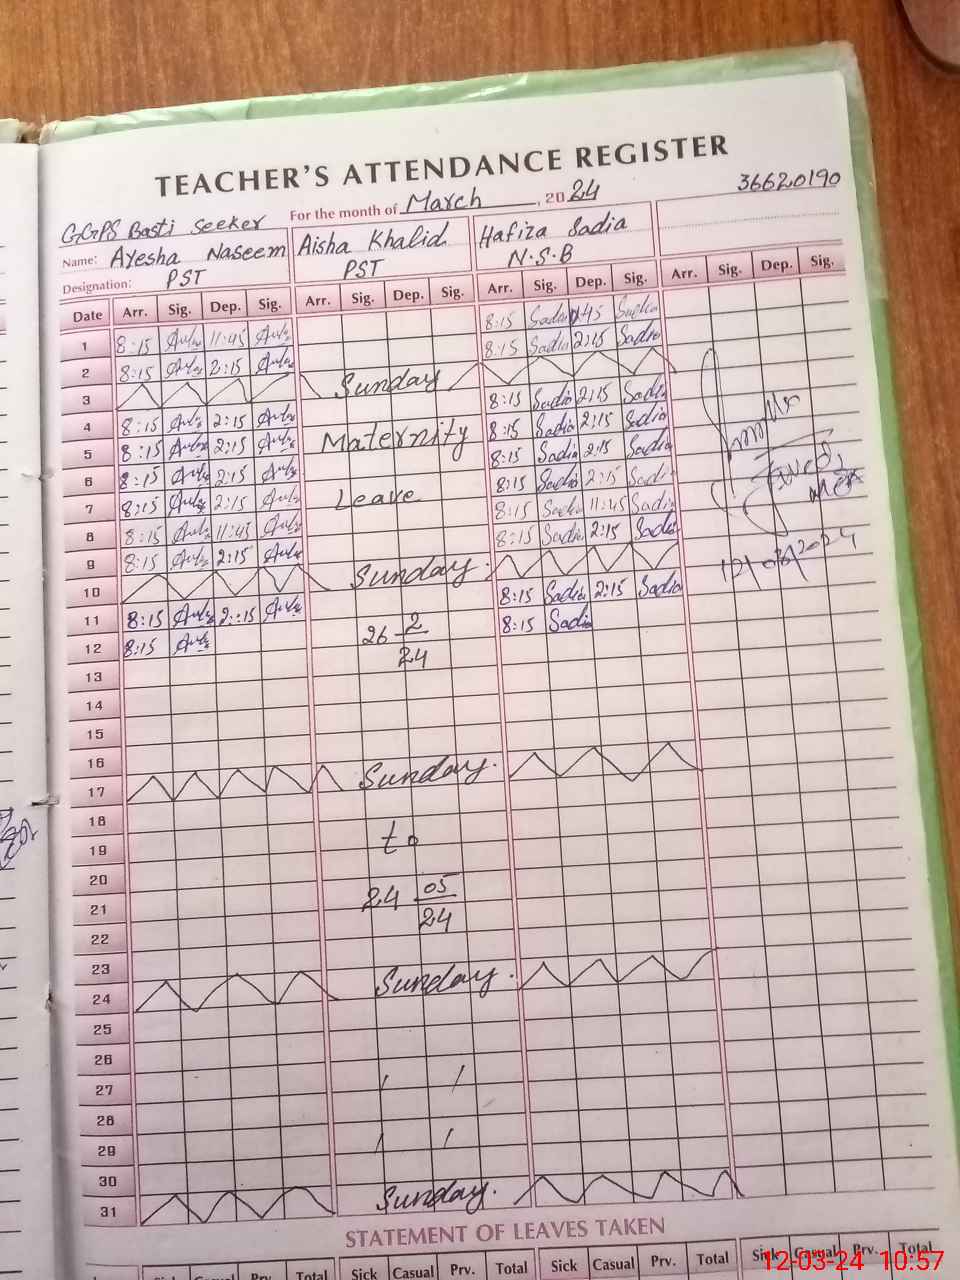 TEACHER'S ATTENDANCE REGISTER
For the month of March, 2024
36620190
GGPS Basti Seeker
Name: Ayesha Naseem Aisha Khalid Hafiza Sadia
Designation: PST PST N.S.B
Date Arr. Sig. Dep. Sig. Arr. Sig. Dep. Sig. Arr. Sig. Dep. Sig. Arr. Sig. Dep. Sig.
1 8:15 11:45 8:15 Sadia 11:45 Sadia
2 8:15 2:15 8:15 Sadia 2:15 Sadia
3 Sunday
4 8:15 2:15 8:15 Sadia 2:15 Sadia
5 8:15 2:15 Maternity 8:15 Sadia 2:15 Sadia
6 8:15 2:15 8:15 Sadia 2:15 Sadia
7 8:15 2:15 Leave 8:15 Sadia 2:15 Sadia
8 8:15 11:45 8:15 Sadia 11:45 Sadia
9 8:15 2:15 8:15 Sadia 2:15 Sadia
10 Sunday.
11 8:15 2:15 8:15 Sadia 2:15 Sadia
12 8:15 26 2/24 8:15 Sadia
12/03/2024
13
14
15
16
17 Sunday.
18
19 to
20
21 24 05/24
22
23
24 Sunday.
25
26
27
28
29
30
31 Sunday.
STATEMENT OF LEAVES TAKEN
Sick Casual Prv. Total Sick Casual Prv. Total Sick Casual Prv. Total Sick Casual Prv. Total
12-03-24 10:57